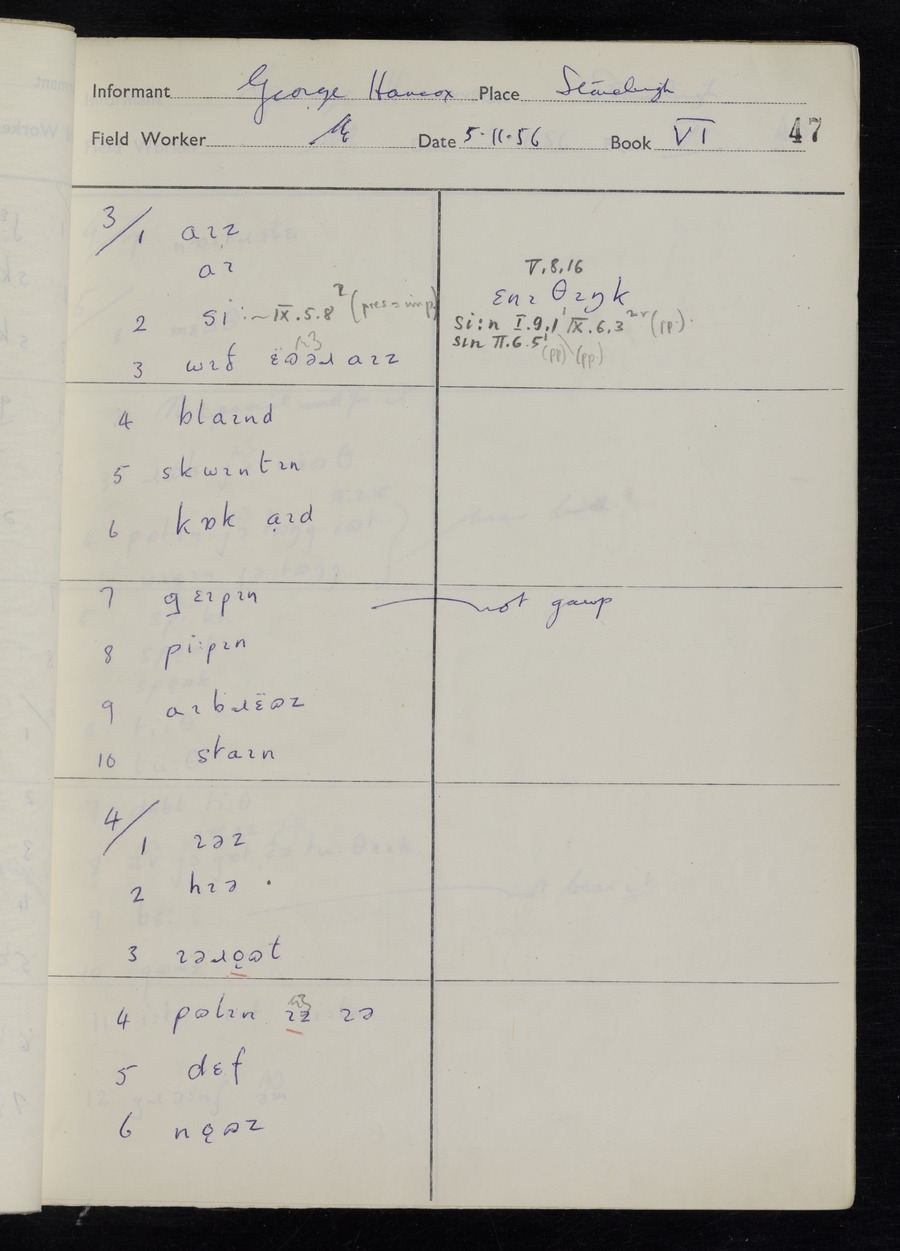 Informant George Hancox Place
Field Worker Date 5·11·56 Book VI 47
3/1 aɪz
aɪ
2 si: ~ IX.5.8² (pres = imp)
3 wɪð aɪz
V.8.16
ɛnɪ θɪŋk
si:n I.9.1¹ IX.6.3 (pp).
sɪn II.6.5¹ (pp) (pp)
4 blaɪnd
5 skwɪntɪn
6 kɒk aɪd
7 gɛɪpɪn not gawp
8 pi:pɪn
9
10 staɪn
4/1 ɪəz
2 hɪə .
3
4 ɪə
5 dɛf
6